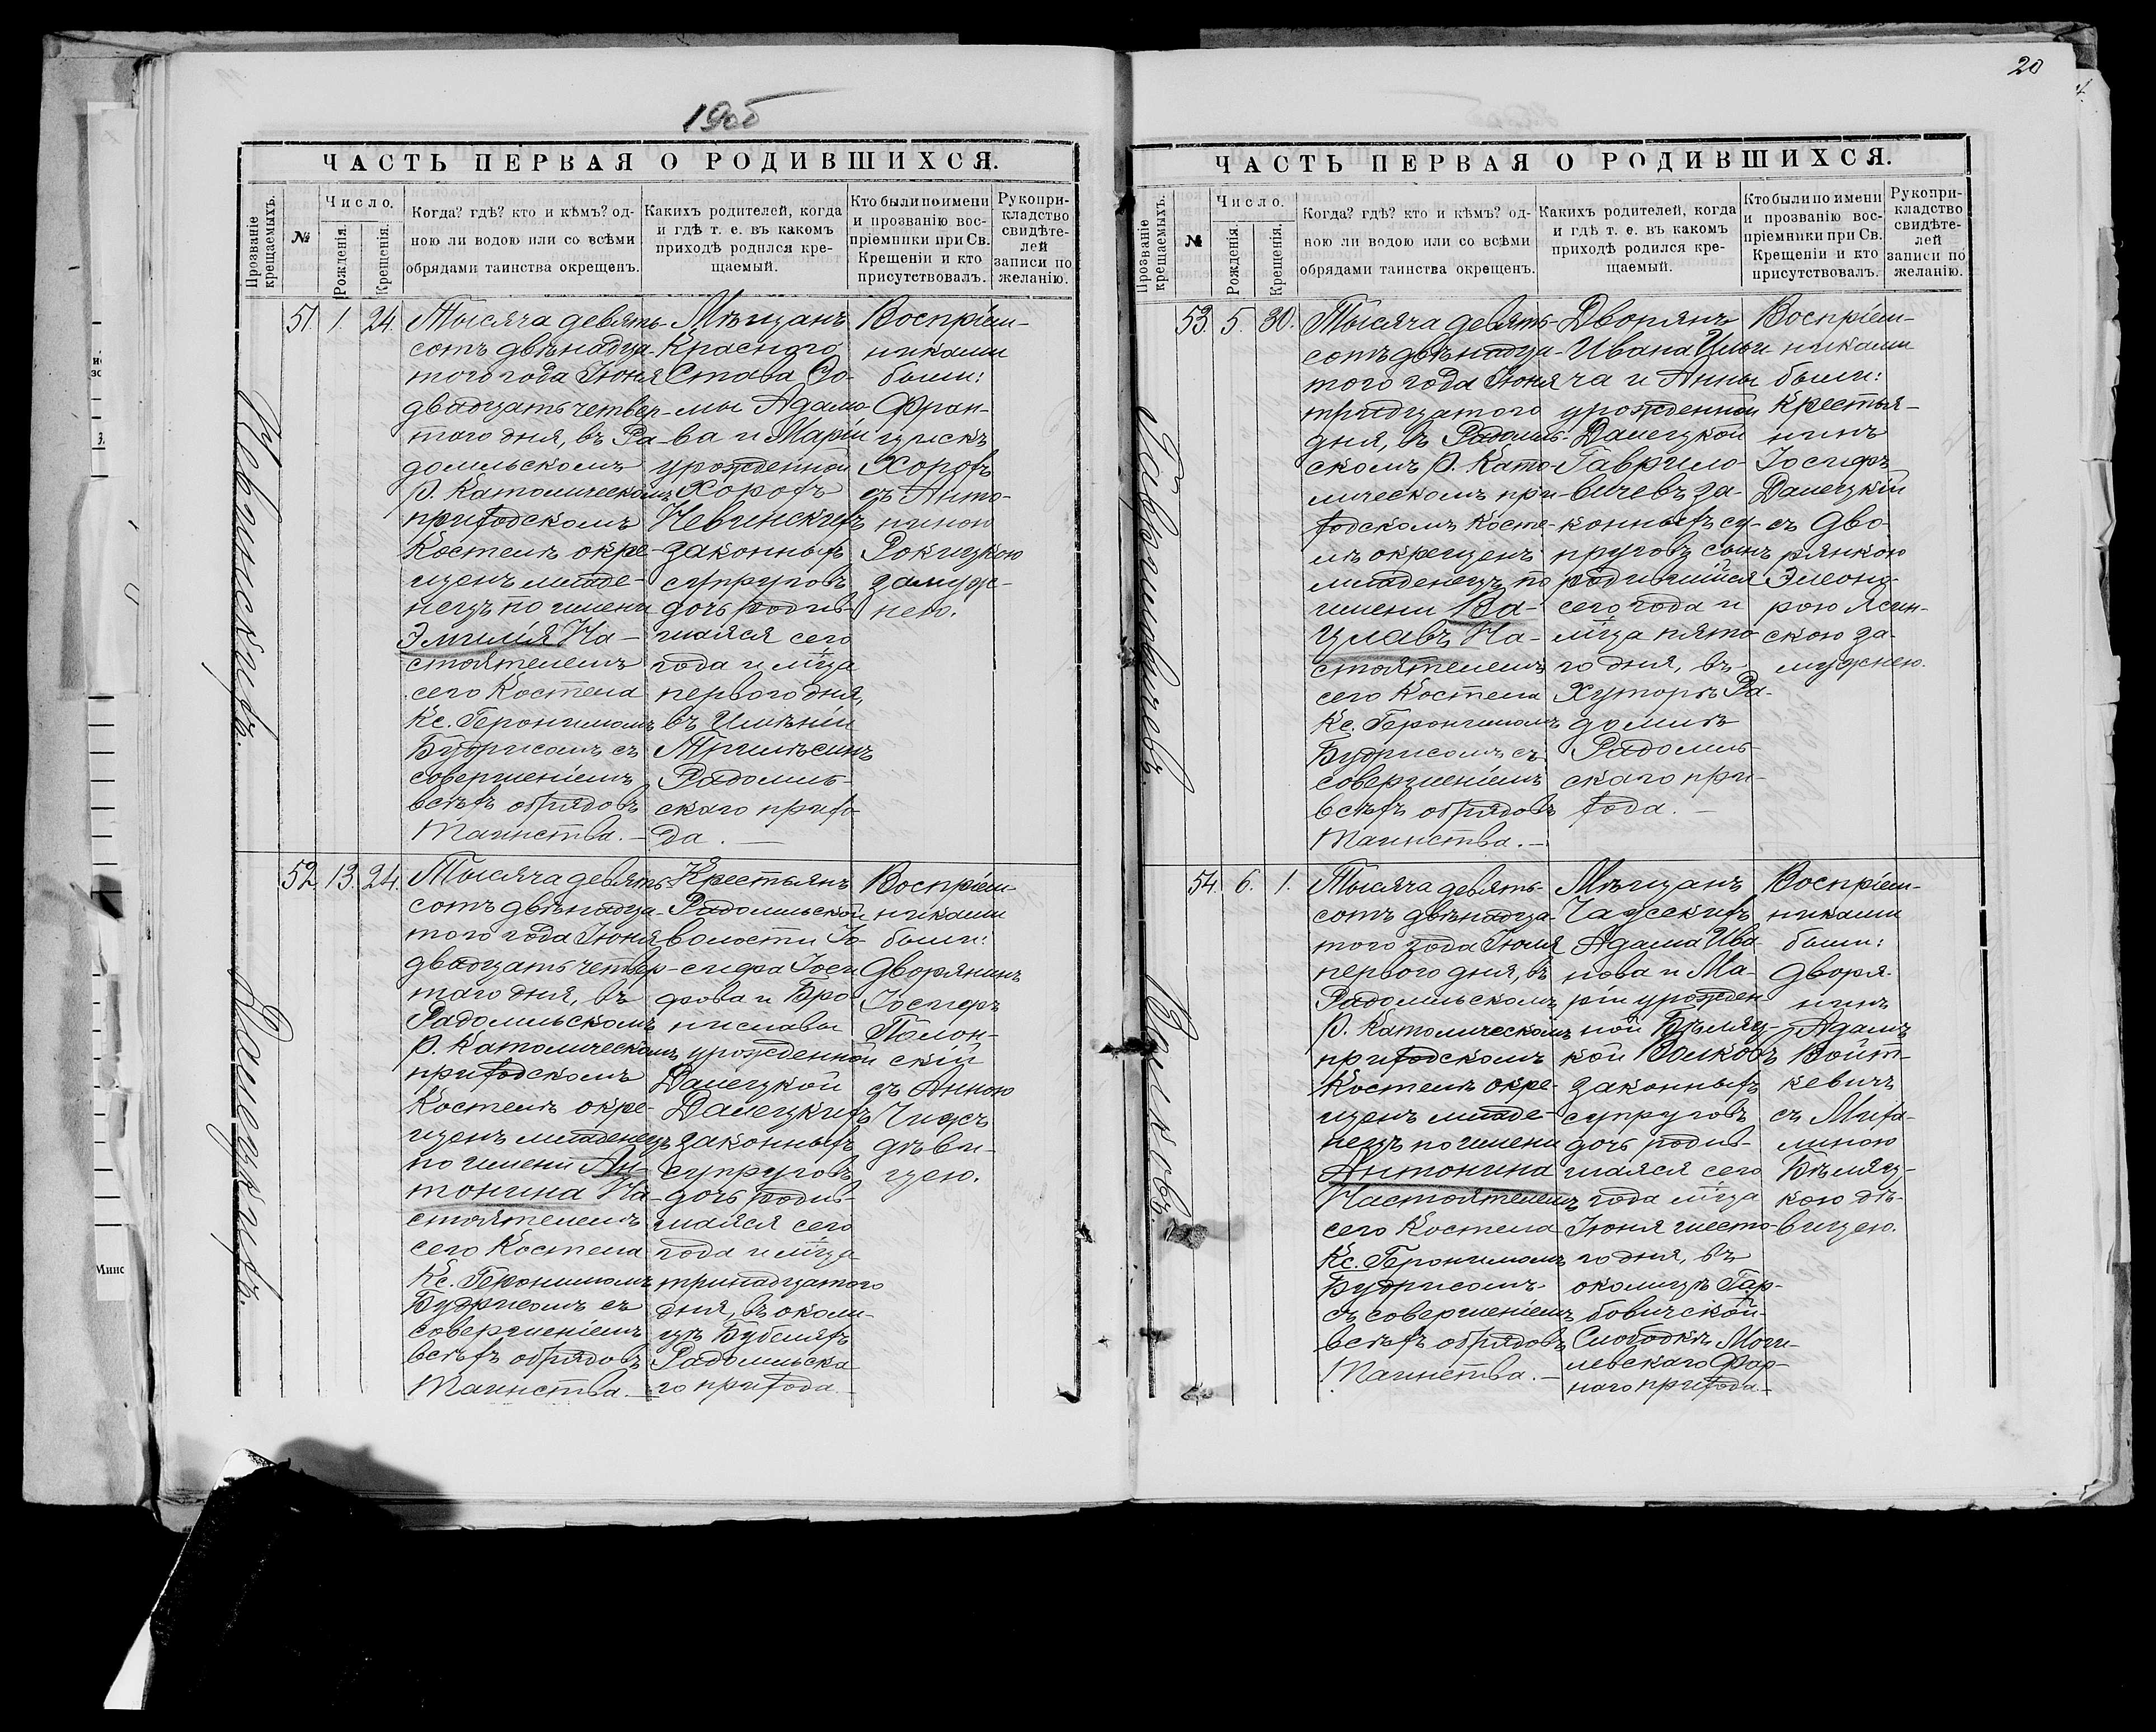 20
19об
ЧАСТЬ ПЕРВАЯ О РОДИВШИХСЯ.
Прозваніе крещаемыхъ.
№
Число.
Рожденія.
Крещенія.
Когда? гдѣ? кто и кѣмъ? од-
ною ли водою или со всѣми
обрядами таинства окрещенъ.
Какихъ родителей, когда
и гдѣ т. е. въ какомъ
приходѣ родился кре-
щаемый.
Кто были по имени
и прозванію вос-
пріемники при Св.
Крещеніи и кто
присутствовалъ.
Рукопри-
кладство
свидѣте-
лей
записи по
желанію.
Невинскихъ.
51. 1. 24.
Тысяча девять-
сотъ двѣнадца-
того года Іюня
двадцать четвер-
таго дня, въ Ра-
домльскомъ
Р. Католическомъ
приходскомъ
Костелѣ окре-
щенъ младе-
нецъ по имени
Эмилія На-
стоятелемъ
сего Костела
Кс. Геронимомъ
Будрисомъ съ
совершеніемъ
всѣхъ обрядовъ
Таинства. —
Мѣщанъ
Краснаго
Става Ѳо-
мы Адамо-
ва и Маріи
урожденной
Хорофъ
Невинскихъ
законныхъ
супруговъ
дочь родив-
шаяся сего
года и м-ца
перваго дня,
въ Имѣніи
Тримѣсинъ
Радомль-
скаго прихо-
да. —
Воспріем-
никами
были:
Фран-
цискъ
Хорофъ
съ Анто-
ниною
Рокицкою
замуж-
нею.
Далецкихъ.
52. 13. 24.
Тысяча девять-
сотъ двѣнадца-
того года Іюня
двадцать четвер-
таго дня, въ
Радомльскомъ
Р. Католическомъ
приходскомъ
Костелѣ окре-
щенъ младенецъ
по имени Ан-
тонина На-
стоятелемъ
сего Костела
Кс. Геронимомъ
Будрисомъ съ
совершеніемъ
всѣхъ обрядовъ
Таинства. —
Крестьянъ
Радомльской
волости Іо-
сифа Іоси-
фова и Бро-
ниславы
урожденной
Далецкой
Далецкихъ
законныхъ
супруговъ
дочь родив-
шаяся сего
года и м-ца
тринадцатаго
дня, въ околи-
цѣ Бубеляхъ
Радомльска-
го прихода. —
Воспріем-
никами
были:
дворянинъ
Іосифъ
Полон-
скій
съ Анною
Чижъ
дѣви-
цею.
ЧАСТЬ ПЕРВАЯ О РОДИВШИХСЯ.
Прозваніе крещаемыхъ.
№
Число.
Рожденія.
Крещенія.
Когда? гдѣ? кто и кѣмъ? од-
ною ли водою или со всѣми
обрядами таинства окрещенъ.
Какихъ родителей, когда
и гдѣ т. е. въ какомъ
приходѣ родился кре-
щаемый.
Кто были по имени
и прозванію вос-
пріемники при Св.
Крещеніи и кто
присутствовалъ.
Рукопри-
кладство
свидѣте-
лей
записи по
желанію.
Гавриловичевъ.
53. 5. 30.
Тысяча девять-
сотъ двѣнадца-
того года Іюня
тридцатого
дня, въ Радомль-
скомъ Р. Като-
лическомъ при-
ходскомъ Косте-
лѣ окрещенъ
младенецъ по
имени Ва-
цлавъ На-
стоятелемъ
сего Костела
Кс. Геронимомъ
Будрисомъ съ
совершеніемъ
всѣхъ обрядовъ
Таинства. —
Дворянъ
Ивана Ильи-
ча и Анны
урожденной
Далецкой
Гаврило-
вичевъ за-
конныхъ су-
пруговъ сынъ
родившійся
сего года и
м-ца пята-
го дня, въ
Хуторѣ Ра-
домлѣ
Радомль-
скаго при-
хода. —
Воспріем-
никами
были:
Крестья-
нинъ
Іосифъ
Далецкій
съ дво-
рянкою
Элеоно-
рою Ясин-
скою за-
мужнею.
Волковъ.
54. 6. 1.
Тысяча девять-
сотъ двѣнадца-
того года Іюля
перваго дня, въ
Радомльскомъ
Р. Католическомъ
приходскомъ
Костелѣ окре-
щенъ младе-
нецъ по имени
Антонина
Настоятелемъ
сего Костела
Кс. Геронимомъ
Будрисомъ
съ совершеніемъ
всѣхъ обрядовъ
Таинства. —
Мѣщанъ
Чаусскихъ
Адама Ива-
нова и Ма-
ріи урожден-
ной Бѣляц-
кой Волковъ
законныхъ
супруговъ
дочь родив-
шаяся сего
года м-ца
Іюня шесто-
го дня, въ
околицѣ Гар-
бовичской
Слободкѣ Моги-
левскаго Фар-
наго прихода —
Воспріем-
никами
были:
дворя-
нинъ
Адамъ
Войт-
кевичъ
съ Миха-
линою
Бѣляц-
кою дѣ-
вицею.
Минс